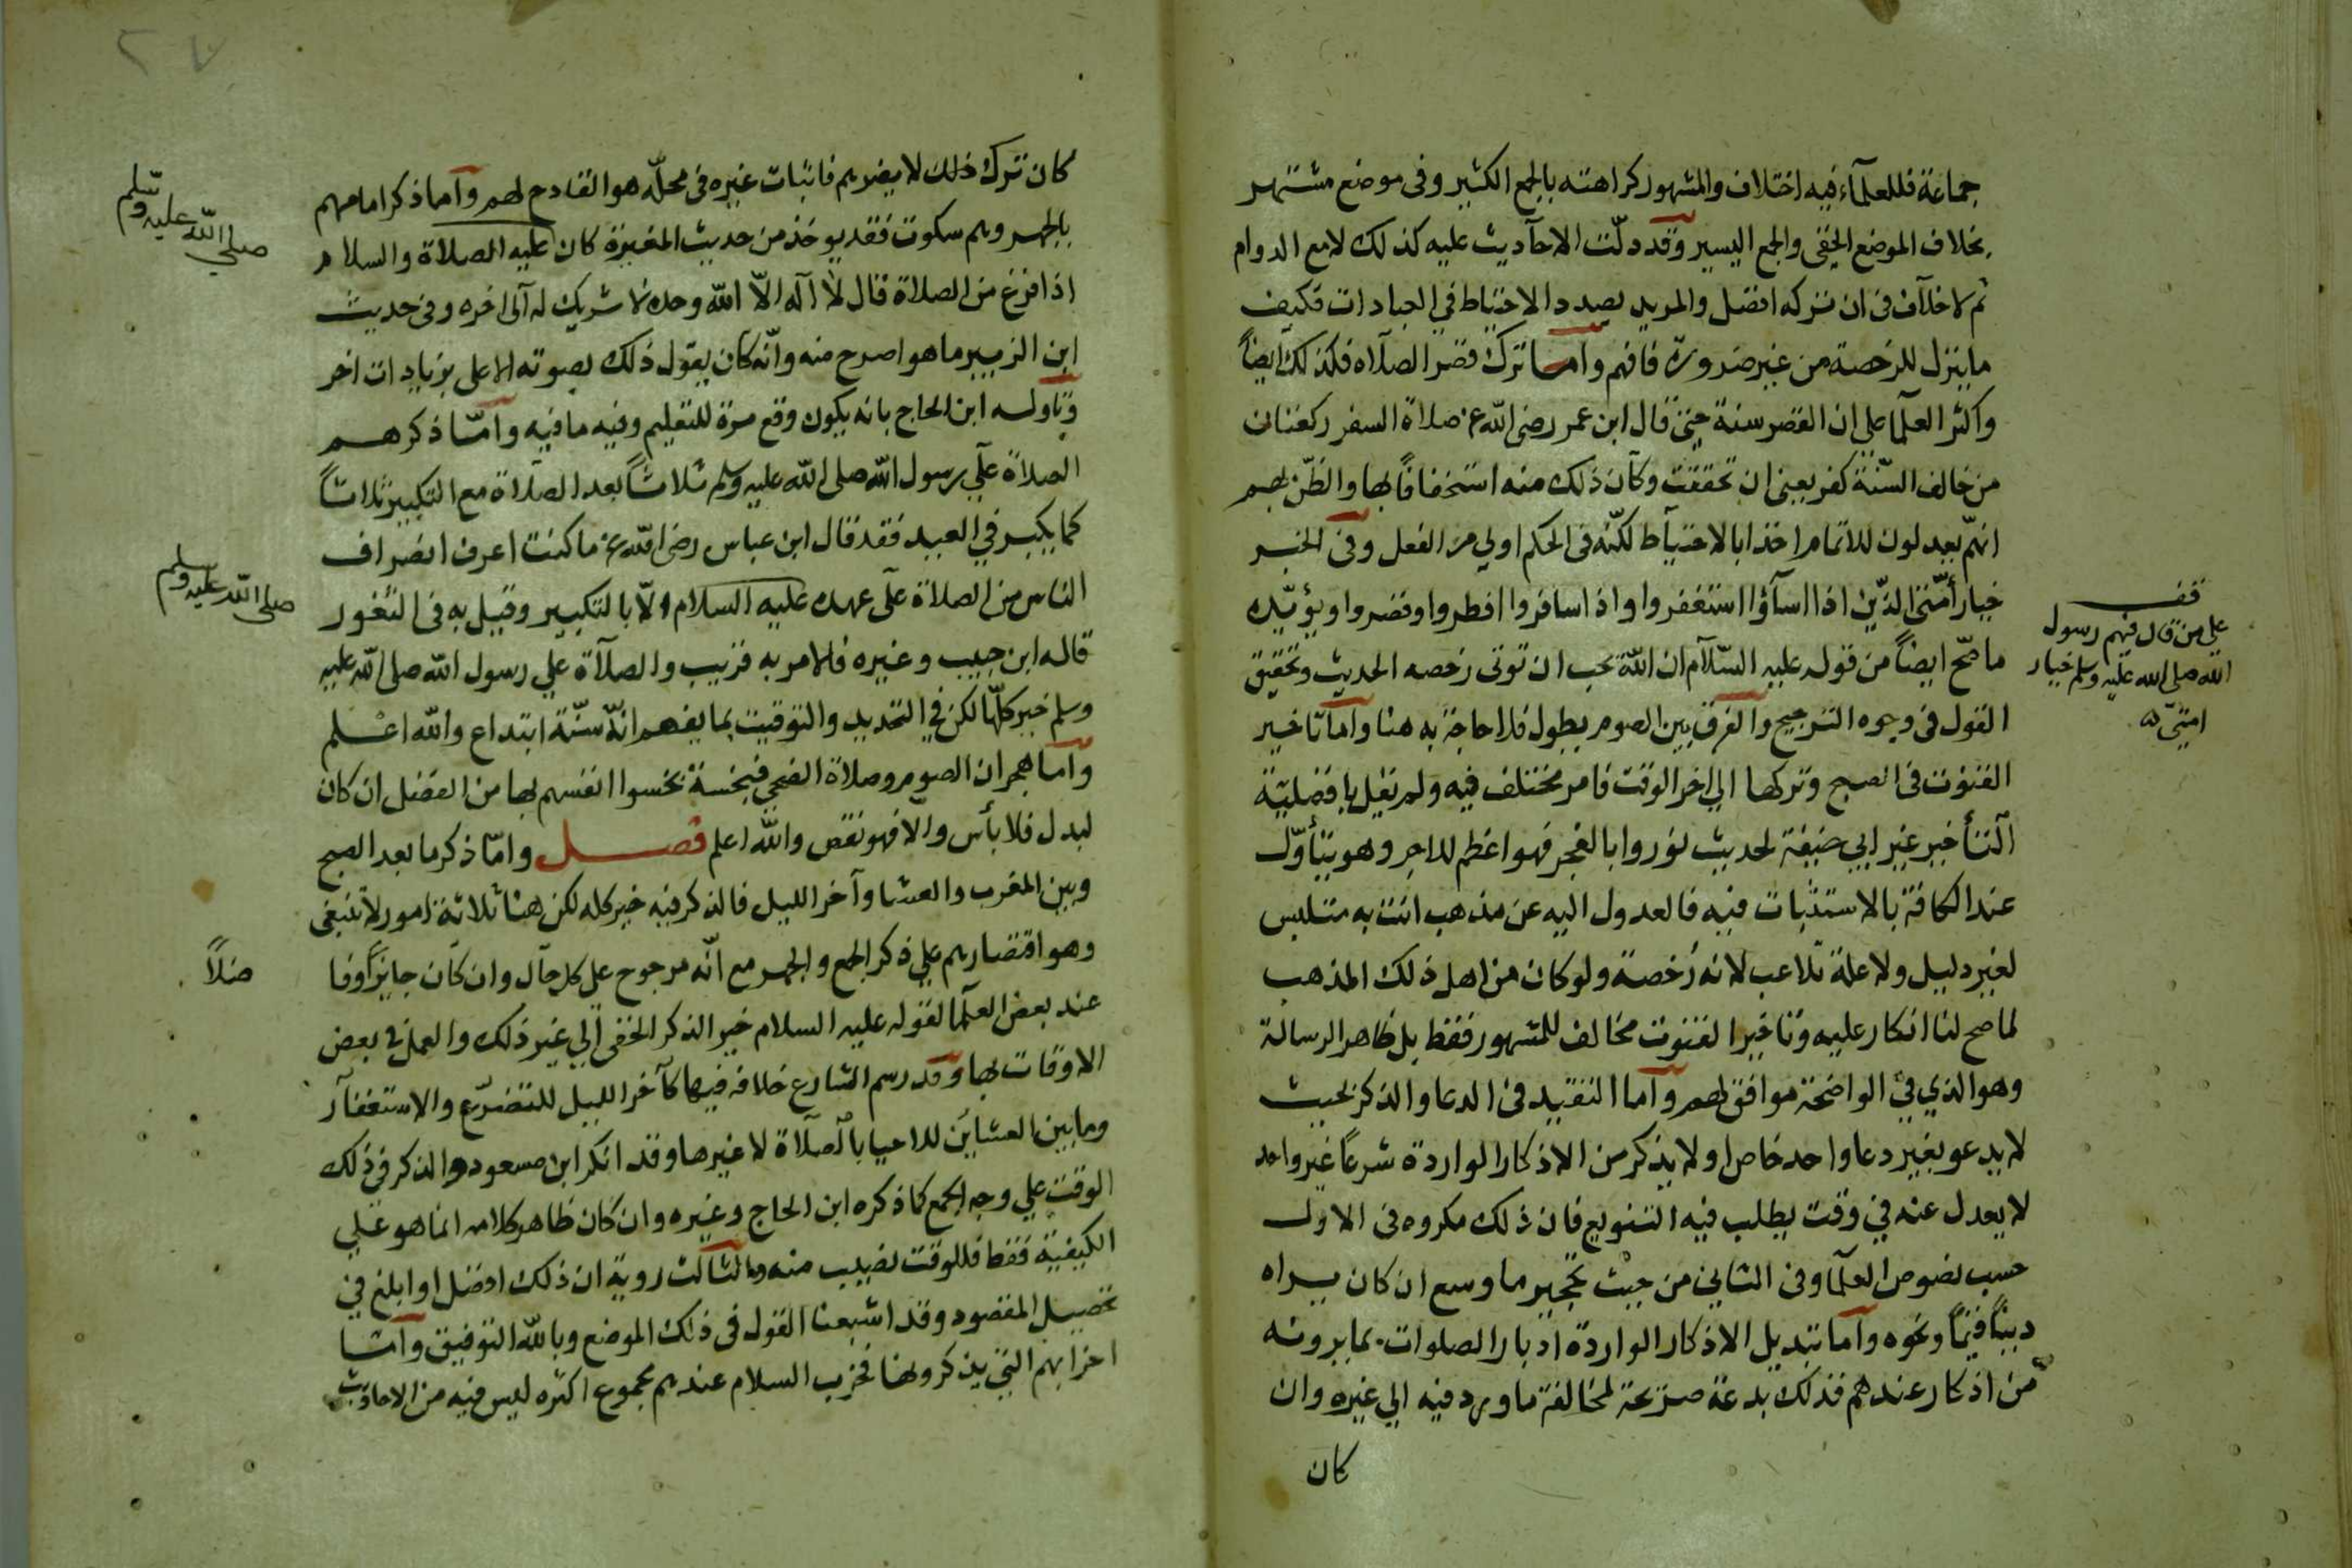 جماعة فللعلمآء فيه اختلاف والمشهور كراهته بالجمع الكثير وفى موضع مشتهر
بخلاف الموضع الخفى والجمع اليسير وقد دلّت الاحآديث عليه كذلك لا مع الدوام
ثم لا خلآف فى ان تركه افضل والمريد بصدد الاحتياط في العبادات فكيف
ما ينزل للرخصة من غير ضرورة فافهم وامـا ترك قصر الصلآاه فكذلك ايضاً
واكثر العلّما على ان القصر سنة حتى قال ابن عمر رضى الله عنه صلاة السفر ركعتان
من خالف السّنّة كفر يعنى ان تحققت وكان ذلك منه استخفافاً بها والظّن بهم
انهّم يعدلون للاتمام اخذا بالاحتيآط لكنّه فى الحكم اولي من الفعل وفى الخبر
خيار أمّتى الذّين اذا اسآؤا استغفروا واذا سافروا افطروا وقصروا ويؤيّده
ما صحّ ايضاً من قوله عليه السّلآم ان اللّه يحب ان توتى رخصه الحديث وتحقيق
القول فى وجوه الترجيح والفرق بين الصوم يطول فلا حاجة به هنا وامآ تاخير
القنوت فى الصبح وتركها الي اخر الوقت فامر مختلف فيه ولم يقل بافضليّة
آلتأخير غير ابي حنيفة لحديث نوروا بالفجر فهو اعظم للاجر وهو يتأوّل
عند الكافة بالاستثبات فيه فالعدول اليه عن مذهب انت به متلبس
لغير دليل ولا علة تلاعب لانه رُخصة ولو كان من اهل ذلك المذهب
لما صح لنا انكار عليه وتاخير القنوت مخالف للمشهور فقط بل ظاهر الرسالة
وهو الذي في الواضحة موافق لهم وآما التقيد فى الدعا والذكر بحيث
لا يدعو بغير دعا واحد خاص ولا يذكر من الاذكار الواردة شرعاً غير واحد
لا يعدل عنه في وقت يطلب فيه التنويع فان ذلك مكروه فى الاول
حسب نصوص العلّما وفى الثاني من حيث تحجير ما وسع ان كان يراه
ديناً قيّماً ونحوه وآما تبديل الاذكار الواردة ادبار الصلوات بما يرونه
من اذكار عندهم فذلك بدعة صريحة لمخالفة ما ورد فيه الي غيره وان
كان
قف
علي من قال فيهم رسول
الله صلى الله عليه وسلم خيار
امتىّ
كان ترك ذلك لا يضرهم فاثبات غيره فى محلّه هو القادح لهم وآما ذكر امامهم
بالجهر وهم سكوت فقد يوخذ من حديث المغيرة كان عليه الصلاة والسلام
اذا فرغ من الصلاة قال لا اله الاّ الله وحده لا شريك له آلى اخره وفى حديث
ابن الزبير ما هو اصرح منه وانّه كان يقول ذلك بصوته الاعلى بزيادات اخر
وتاوله ابن الحاج بانه يكون وقع مرة للتعليم وفيه ما فيه وآمّا ذكرهم
الصلاة علي رسول الله صلى الله عليه وسلم ثلاثاً بعد الصلاة مع التكبير ثلاثاً
كما يكبر في العيد فقد قال ابن عباس رضى اللّه عنه ما كنت اعرف انصراف
الناس من الصلاة على عهده عليه السلام الاّ بالتكبير وقيل به فى الثغور
قاله ابن حبيب وغيره فالامر به قريب والصلآة علي رسول الله صلى الله عليه
وسلم خير كلّها لكن في التحديد والتوقيت بما يفهم انّه سنّة ابتداع والله اعلم
وآما هجران الصوم وصلاة الضحى فبخسة بخسوا انفسهم بها من الفضل ان كان
لبدل فلا بأس والا فهو نقص واللّه اعلم فصـــل وامّا ذكر ما بعد الصبح
وبين المغرب والعشا وآخر الليل فالذكر فيه خير كله لكن هنا ثلاثة امور لا تنبغى
وهو اقتصارهم علي ذكر الجمع والجهر مع انّه مرجوح على كل حآل وان كان جايزاً وفا
عند بعض العلّما لقوله عليه السلام خير الذكر الخفى آلي غير ذلك والعمل فى بعض
الاوقات بها وقد رسم الشارع خلافه فيها كآخر الليل للتضرّع والاستغفآر
وما بين العشاين للاحيا بالصلآة لا غيرها وقد انكر ابن مسعود والذكر في ذلك
الوقت علي وجه الجمع كما ذكره ابن الحاج وغيره وان كان ظاهر كلامه انما هو علي
الكيفية فقط فللوقت نصيب منه والثالث روية ان ذلك افضل او ابلغ في
تحصيل المقصود وقد اشبعنا القول فى ذلك الموضع وبالله التوفيق وآمـّا
احزابهم التي يذكرونها فحزب السلام عندهم مجموع اكثره ليس فيه من الاحاديث
صلى الله عليه وسلم
صلى الله عليه وسلم